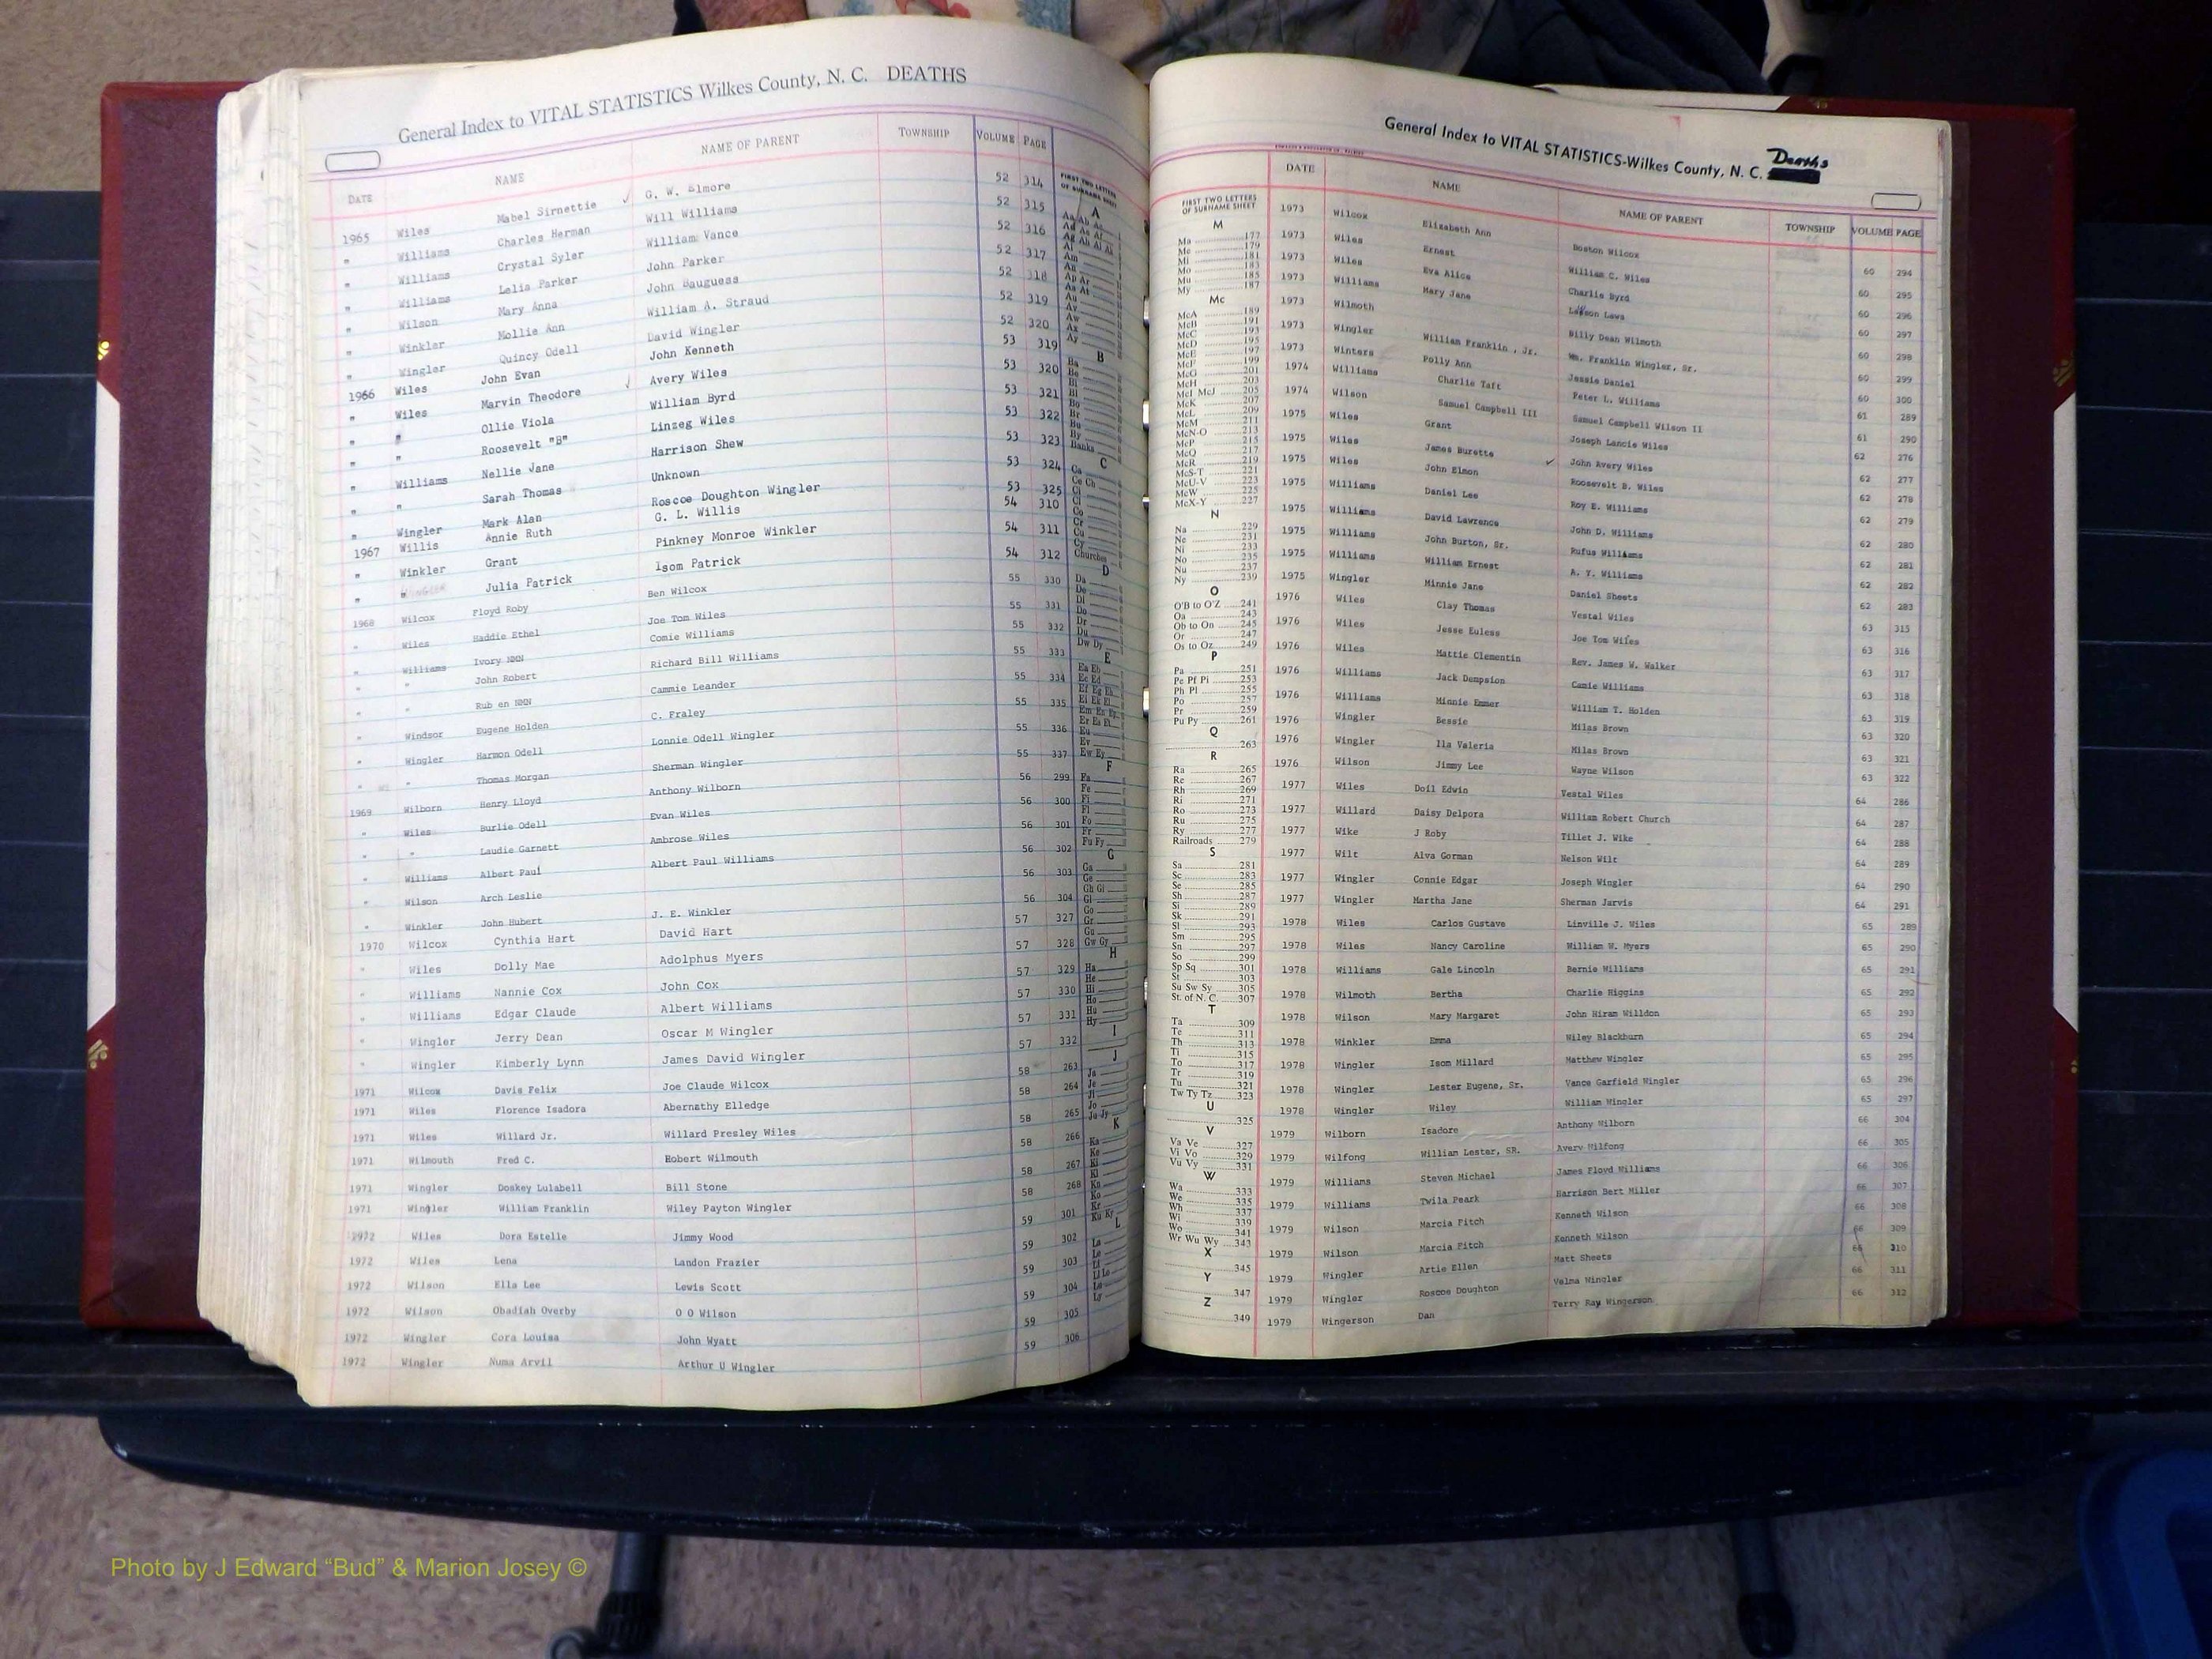 General Index to VITAL STATISTICS Wilkes County, N. C. DEATHS
DATE NAME NAME OF PARENT TOWNSHIP VOLUME PAGE
1965 Wiles Mabel Sirnettie ✓ G. W. Elmore 52 314
" Williams Charles Herman Will Williams 52 315
" Williams Crystal Syler William Vance 52 316
" Williams Lelia Parker John Parker 52 317
" Wilson Mary Anna John Bauguess 52 318
" Winkler Mollie Ann William A. Straud 52 319
" Wingler Quincy Odell David Wingler 52 320
1966 Wiles John Evan John Kenneth 53 319
" Wiles Marvin Theodore ✓ Avery Wiles 53 320
" " Ollie Viola William Byrd 53 321
" " Roosevelt "B" Linzeg Wiles 53 322
" Williams Nellie Jane Harrison Shew 53 323
" " Sarah Thomas Unknown 53 324
" Wingler Mark Alan Roscoe Doughton Wingler 53 325
1967 Willis Annie Ruth G. L. Willis 54 310
" Winkler Grant Pinkney Monroe Winkler 54 311
" " WINGLER Julia Patrick Isom Patrick 54 312
1968 Wilcox Floyd Roby Ben Wilcox 55 330
" Wiles Haddie Ethel Joe Tom Wiles 55 331
" Williams Ivory NMN Comie Williams 55 332
" " John Robert Richard Bill Williams 55 333
" " Rub en NMN Cammie Leander 55 334
" Windsor Eugene Holden C. Fraley 55 335
" Wingler Harmon Odell Lonnie Odell Wingler 55 336
" " Thomas Morgan Sherman Wingler 55 337
1969 Wilborn Henry Lloyd Anthony Wilborn 56 299
" Wiles Burlie Odell Evan Wiles 56 300
" " Laudie Garnett Ambrose Wiles 56 301
" Williams Albert Paul Albert Paul Williams 56 302
" Wilson Arch Leslie 56 303
" Winkler John Hubert J. E. Winkler 56 304
1970 Wilcox Cynthia Hart David Hart 57 327
" Wiles Dolly Mae Adolphus Myers 57 328
" Williams Nannie Cox John Cox 57 329
" Williams Edgar Claude Albert Williams 57 330
" Wingler Jerry Dean Oscar M Wingler 57 331
" Wingler Kimberly Lynn James David Wingler 57 332
1971 Wilcox Davis Felix Joe Claude Wilcox 58 263
1971 Wiles Florence Isadora Abernathy Elledge 58 264
1971 Wiles Willard Jr. Willard Presley Wiles 58 265
1971 Wilmouth Fred C. Robert Wilmouth 58 266
1971 Wingler Doskey Lulabell Bill Stone 58 267
1971 Wingler William Franklin Wiley Payton Wingler 58 268
1972 Wiles Dora Estelle Jimmy Wood 59 301
1972 Wiles Lena Landon Frazier 59 302
1972 Wilson Ella Lee Lewis Scott 59 303
1972 Wilson Obadiah Overby O O Wilson 59 304
1972 Wingler Cora Louisa John Wyatt 59 305
1972 Wingler Numa Arvil Arthur U Wingler 59 306
FIRST TWO LETTERS
OF SURNAME SHEET
A
B
Banks
C
Churches
D
E
F
G
H
I
J
K
L
General Index to VITAL STATISTICS-Wilkes County, N. C. Deaths
DATE NAME NAME OF PARENT TOWNSHIP VOLUME PAGE
1973 Wilcox Elizabeth Ann Boston Wilcox 60 294
1973 Wiles Ernest William C. Wiles 60 295
1973 Wiles Eva Alice Charlie Byrd 60 296
1973 Williams Mary Jane Lawson Laws 60 297
1973 Wilmoth Billy Dean Wilmoth 60 298
1973 Wingler William Franklin , Jr. Wm. Franklin Wingler, Sr. 60 299
1973 Winters Polly Ann Jessie Daniel 60 300
1974 Williams Charlie Taft Peter L. Williams 61 289
1974 Wilson Samuel Campbell III Samuel Campbell Wilson II 61 290
1975 Wiles Grant Joseph Lancie Wiles 62 276
1975 Wiles James Burette ✓ John Avery Wiles 62 277
1975 Wiles John Elmon Roosevelt B. Wiles 62 278
1975 Williams Daniel Lee Roy E. Williams 62 279
1975 Williams David Lawrence John D. Williams 62 280
1975 Williams John Burton, Sr. Rufus Williams 62 281
1975 Williams William Ernest A. Y. Williams 62 282
1975 Wingler Minnie Jane Daniel Sheets 62 283
1976 Wiles Clay Thomas Vestal Wiles 63 315
1976 Wiles Jesse Euless Joe Tom Wiles 63 316
1976 Wiles Mattie Clementin Rev. James W. Walker 63 317
1976 Williams Jack Dempsion Camie Williams 63 318
1976 Williams Minnie Emmer William T. Holden 63 319
1976 Wingler Bessie Milas Brown 63 320
1976 Wingler Ila Valeria Milas Brown 63 321
1976 Wilson Jimmy Lee Wayne Wilson 63 322
1977 Wiles Doil Edwin Vestal Wiles 64 286
1977 Willard Daisy Delpora William Robert Church 64 287
1977 Wike J Roby Tillet J. Wike 64 288
1977 Wilt Alva Gorman Nelson Wilt 64 289
1977 Wingler Connie Edgar Joseph Wingler 64 290
1977 Wingler Martha Jane Sherman Jarvis 64 291
1978 Wiles Carlos Gustave Linville J. Wiles 65 289
1978 Wiles Nancy Caroline William W. Myers 65 290
1978 Williams Gale Lincoln Bernie Williams 65 291
1978 Wilmoth Bertha Charlie Higgins 65 292
1978 Wilson Mary Margaret John Hiram Willdon 65 293
1978 Winkler Emma Wiley Blackburn 65 294
1978 Wingler Isom Millard Matthew Wingler 65 295
1978 Wingler Lester Eugene, Sr. Vance Garfield Wingler 65 296
1978 Wingler Wiley William Wingler 65 297
1979 Wilborn Isadore Anthony Wilborn 66 304
1979 Wilfong William Lester, SR. Avery Wilfong 66 305
1979 Williams Steven Michael James Floyd Williams 66 306
1979 Williams Twila Peark Harrison Bert Miller 66 307
1979 Wilson Marcia Fitch Kenneth Wilson 66 308
1979 Wilson Marcia Fitch Kenneth Wilson 66 309
1979 Wingler Artie Ellen Matt Sheets 66 310
1979 Wingler Roscoe Doughton Velma Wingler 66 311
1979 Wingerson Dan Terry Ray Wingerson 66 312
FIRST TWO LETTERS
OF SURNAME SHEET
M
Ma 177
Me 179
Mi 181
Mo 183
Mu 185
My 187
Mc
McA 189
McB 191
McC 193
McD 195
McE 197
McF 199
McG 201
McH 203
McI McJ 205
McK 207
McL 209
McM 211
McN-O 213
McP 215
McQ 217
McR 219
McS-T 221
McU-V 223
McW 225
McX-Y 227
N
Na 229
Ne 231
Ni 233
No 235
Nu 237
Ny 239
O
O'B to O'Z 241
Oa 243
Ob to On 245
Or 247
Os to Oz 249
P
Pa 251
Pe Pf Pi 253
Ph Pl 255
Po 257
Pr 259
Pu Py 261
Q
263
R
Ra 265
Re 267
Rh 269
Ri 271
Ro 273
Ru 275
Ry 277
Railroads 279
S
Sa 281
Sc 283
Se 285
Sh 287
Si 289
Sk 291
Sl 293
Sm 295
Sn 297
So 299
Sp Sq 301
St 303
Su Sw Sy 305
St. of N. C. 307
T
Ta 309
Te 311
Th 313
Ti 315
To 317
Tr 319
Tu 321
Tw Ty Tz 323
U
325
V
Va Ve 327
Vi Vo 329
Vu Vy 331
W
Wa 333
We 335
Wh 337
Wi 339
Wo 341
Wr Wu Wy 343
X
345
Y
347
Z
349
Photo by J Edward “Bud” & Marion Josey ©